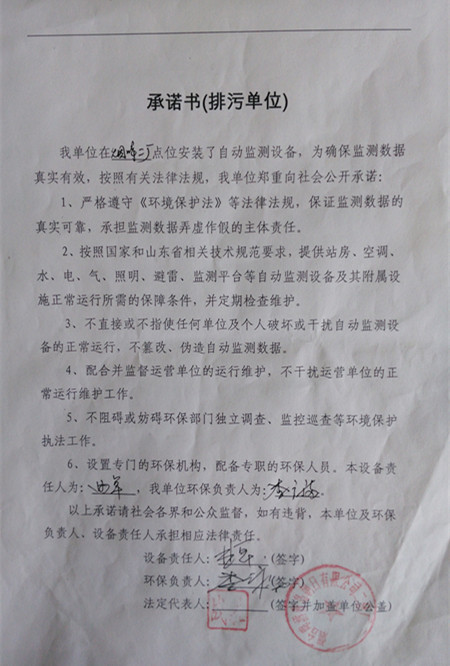 承诺书(排污单位)
我单位在 点位安装了自动监测设备，为确保监测数据
真实有效，按照有关法律法规，我单位郑重向社会公开承诺：
1、严格遵守《环境保护法》等法律法规，保证监测数据的
真实可靠，承担监测数据弄虚作假的主体责任。
2、按照国家和山东省相关技术规范要求，提供站房、空调、
水、电、气、照明、避雷、监测平台等自动监测设备及其附属设
施正常运行所需的保障条件，并定期检查维护。
3、不直接或不指使任何单位及个人破坏或干扰自动监测设
备的正常运行，不篡改、伪造自动监测数据。
4、配合并监督运营单位的运行维护，不干扰运营单位的正
常运行维护工作。
5、不阻碍或妨碍环保部门独立调查、监控巡查等环境保护
执法工作。
6、设置专门的环保机构，配备专职的环保人员。本设备责
任人为： ，我单位环保负责人为： 。
以上承诺请社会各界和公众监督，如有违背，本单位及环保
负责人、设备责任人承担相应法律责任。
设备责任人： (签字)
环保负责人： (签字)
法定代表人： (签字并加盖单位公盖)